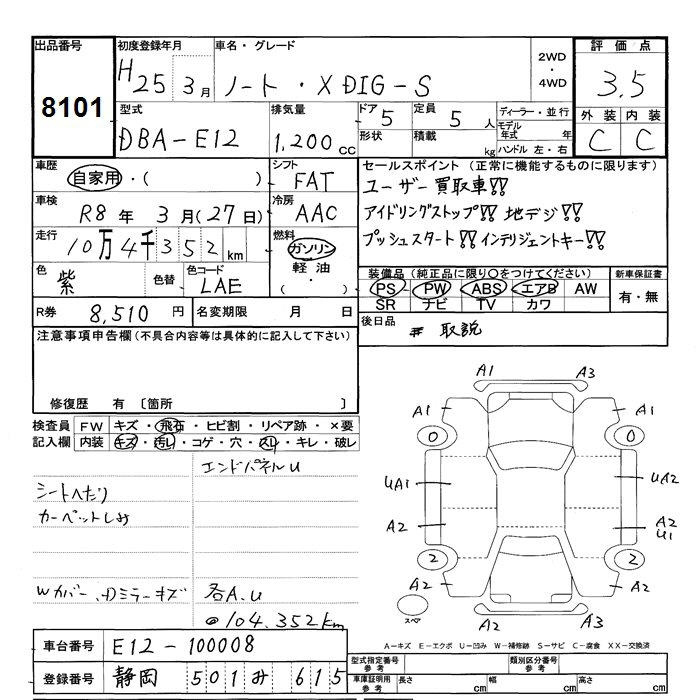 出品番号 初度登録年月 車名・グレード 2WD・4WD 評価点
8101 H25 3月 ノート・X DIG-S 3.5
型式 排気量 ドア 5 定員 5人 ディーラー・並行 外装 内装
DBA-E12 1,200cc 形状 積載 kg モデル年式 年 ハンドル 左・右 C C
車歴 自家用・( ) シフト FAT セールスポイント (正常に機能するものに限ります)
ユーザー買取車!!
車検 R8年 3月(27日) 冷房 AAC アイドリングストップ!! 地デジ!!
走行 10万4千352km 燃料 ガソリン・軽油・( ) プッシュスタート!! インテリジェントキー!!
色 紫 色替 色コード LAE
装備品 (純正品に限り○をつけてください) 新車保証書
PS PW ABS エアB AW 有・無
SR ナビ TV カワ
R券 8,510円 名変期限 月 日 後日品 # 取説
注意事項申告欄(不具合内容等は具体的に記入して下さい)
修復歴 有 〔箇所 〕
検査員記入欄 FW キズ・飛石・ヒビ割・リペア跡・×要
内装 キズ・汚れ・コゲ・穴・スレ・キレ・破レ
エンドパネルU
シートへたり
カーペットしみ
Wカバー、Dミラーキズ 各A.U
@104.352km
A1 A3
A1 A1
0 0
UA1 UA2
A2 A2 U1
2 2
A2 A2
A2 A3
スペア
A-キズ E-エクボ U-凹み W-補修跡 S-サビ C-腐食 XX-交換済
車台番号 E12-100008
登録番号 静岡 501 み 615
型式指定番号 参考 類別区分番号 参考
車庫証明用 参考 長さ cm 幅 cm 高さ cm